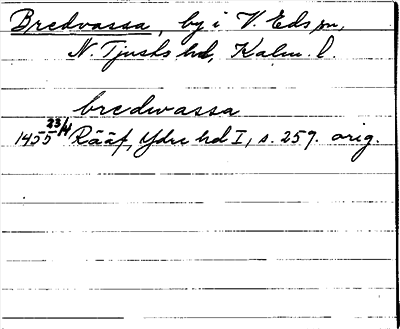 Bredvassa, by i V. Eds sn,
N. Tjusts hd, Kalm. l.
bredwassa
1455 23/4 Rääf, Ydre hd I, s. 259. orig.